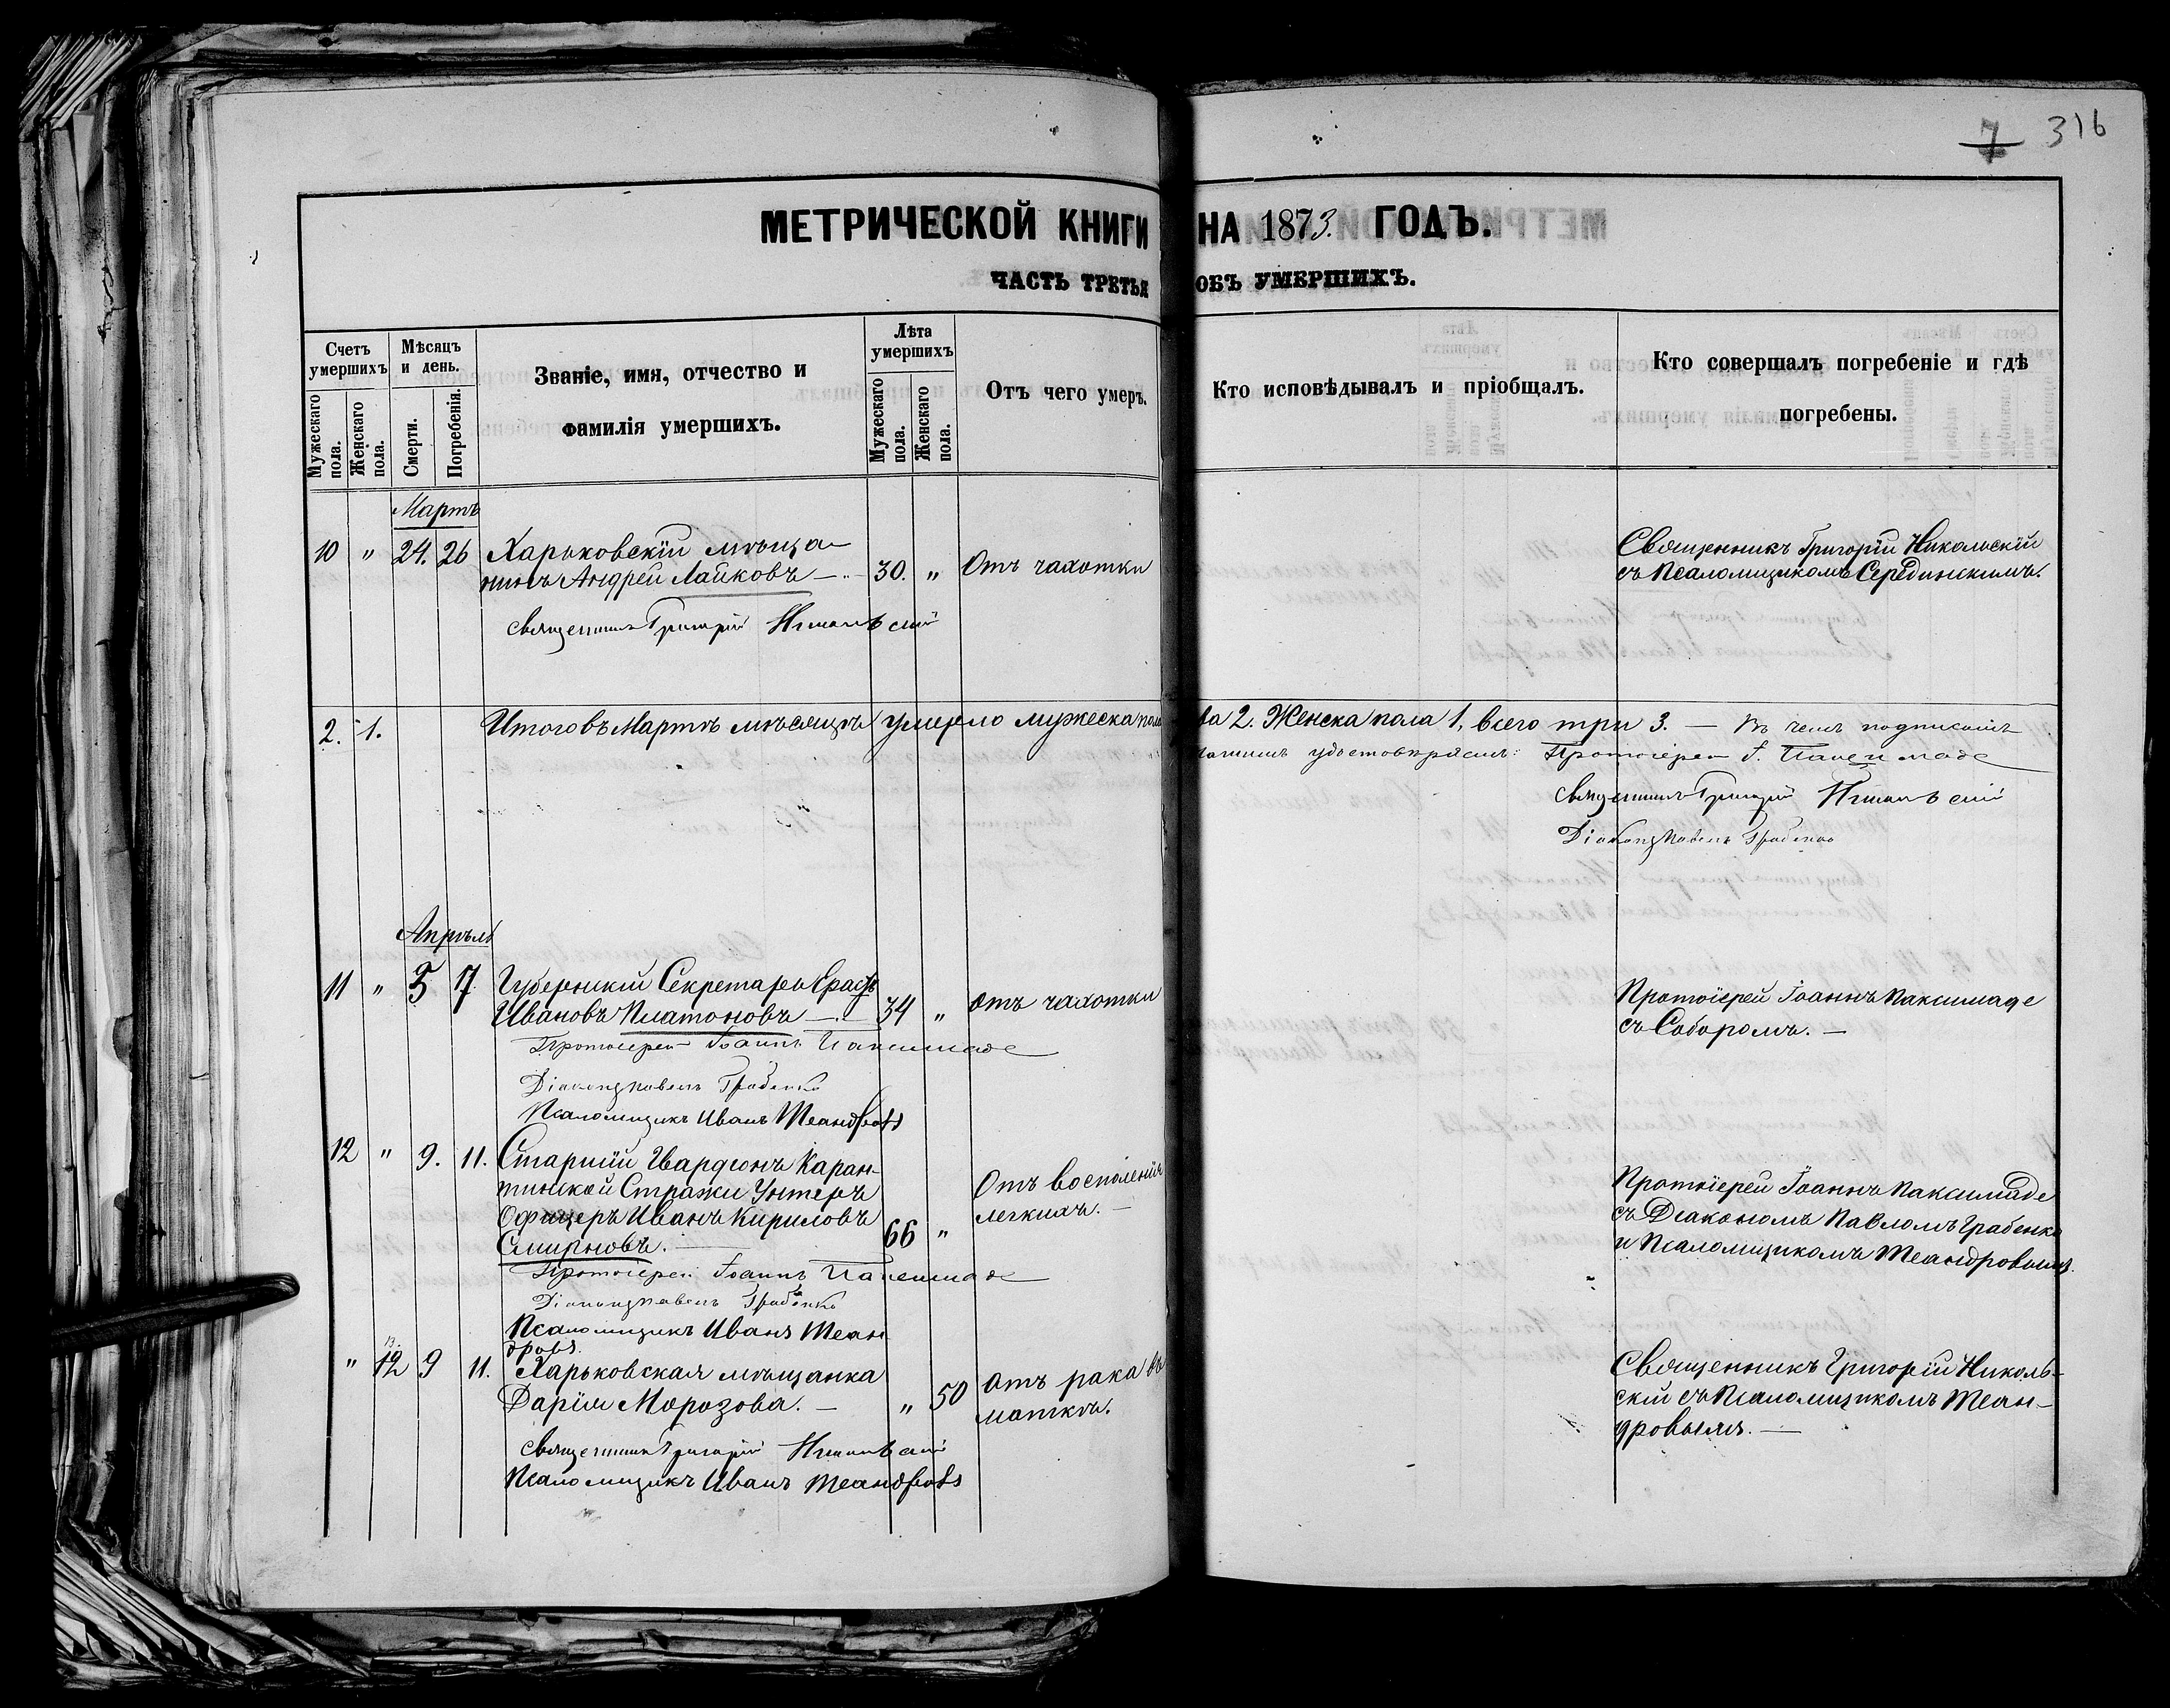 7 316
МЕТРИЧЕСКОЙ КНИГИ НА 1873. ГОДЪ.
ЧАСТЬ ТРЕТЬЯ ОБЪ УМЕРШИХЪ.
Счетъ умершихъ
Мужескаго пола.
Женскаго пола.
Мѣсяцъ и день.
Смерти.
Погребенія.
Званіе, имя, отчество и
фамилія умершихъ.
Лѣта умершихъ
Мужескаго пола.
Женскаго пола.
Отъ чего умеръ.
Кто исповѣдывалъ и пріобщалъ.
Кто совершалъ погребеніе и гдѣ
погребены.
Мартъ
10 " 24. 26 Харьковскій мѣща- Священникъ Григорій Никольскій
нинъ Андрей Лайковъ 30. " Отъ чахотки съ Псаломщикомъ Серединскимъ.
Священникъ Григорій Никольскій
2. 1. Итого въ Мартѣ мѣсяцѣ умерло мужеска пола 2. Женска пола 1, всего три 3. — въ чемъ подписомъ
удостовѣряемъ: Протоіерей І. Паксимаде
Священникъ Григорій Никольскій
Діаконъ Павелъ Грабенко
Апрѣль
11 " 5 7 Губернскій Секретарь Ерастъ Протоіерей Іоаннъ Паксимаде
Ивановъ Платоновъ 34 " Отъ чахотки съ Соборомъ. —
Протоіерей Іоаннъ Паксимаде
Діаконъ Павелъ Грабенко
Псаломщикъ Иванъ Теандровъ
12 " 9. 11. Старшій Гвардіонъ Каран- Протоіерей Іоаннъ Паксимаде
тинной Стражи Унтеръ Отъ восполенія съ Діакономъ Павломъ Грабенко
Офицеръ Иванъ Кириловъ легкихъ. — и Псаломщикомъ Теандровымъ.
Смирновъ. 66 "
Протоіерей Іоаннъ Паксимаде
Діаконъ Павелъ Грабенко
Псаломщикъ Иванъ Теан
дровъ.
" 12 9 11. Харьковская мѣщанка Отъ рака въ Священникъ Григорій Николь-
Дарія Морозова. — " 50 маткѣ. скій съ Псаломщикомъ Теан-
дровымъ. —
Священникъ Григорій Никольскій
Псаломщикъ Иванъ Теандровъ